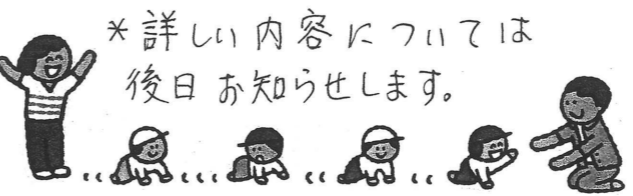 *詳しい内容については
後日お知らせします。